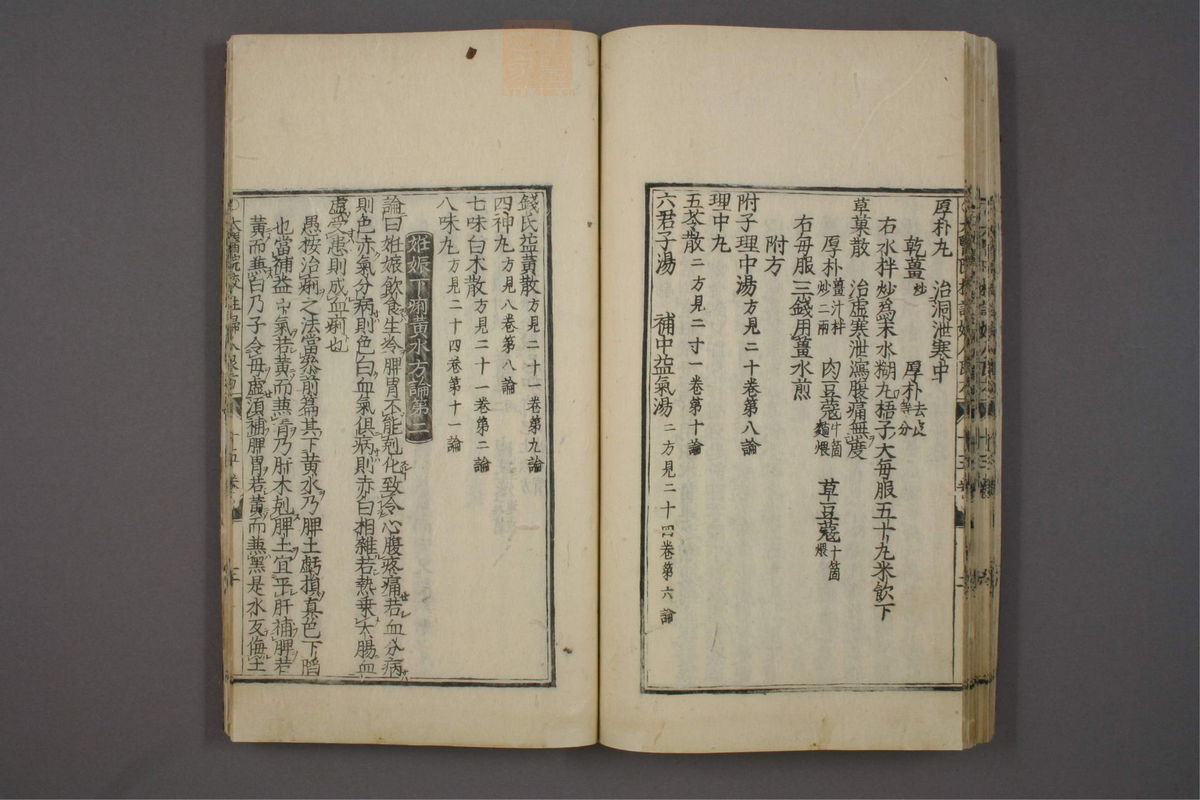 厚朴丸　治洞泄寒中
乾薑炒　厚朴去皮等分
右水拌炒爲末水糊丸梧子大毎服五十丸米飲下
草菓散　治虚寒泄瀉腹痛無度
厚朴薑汁拌炒二兩　肉豆蔻十箇麵煨　草豆蔻十箇煨
右毎服三錢用薑水煎
附方
附子理中湯方見二十卷第八論
理中丸
五苓散二方見二十一卷第十論
六君子湯　補中益氣湯二方見二十四卷第六論
錢氏益黄散方見二十一卷第九論
四神丸方見八卷第八論
七味白朮散方見二十一卷第二論
八味丸方見二十四卷第十一論
姙娠下痢黄水方論第二
論曰姙娠飲食生冷脾胃不能剋化致令心腹疼痛若血分病
則色赤氣分病則色白血氣俱病則赤白相雜若熱乗大腸血
虚受患則成血痢也
愚按治痢之法當参前篇其下黄水乃脾土虧損真色下陷
也當補益中氣若黄而兼青乃肝木剋脾土宜平肝補脾若
黄而兼白乃子令母虚須補脾胃若黄而兼黒是水反侮土